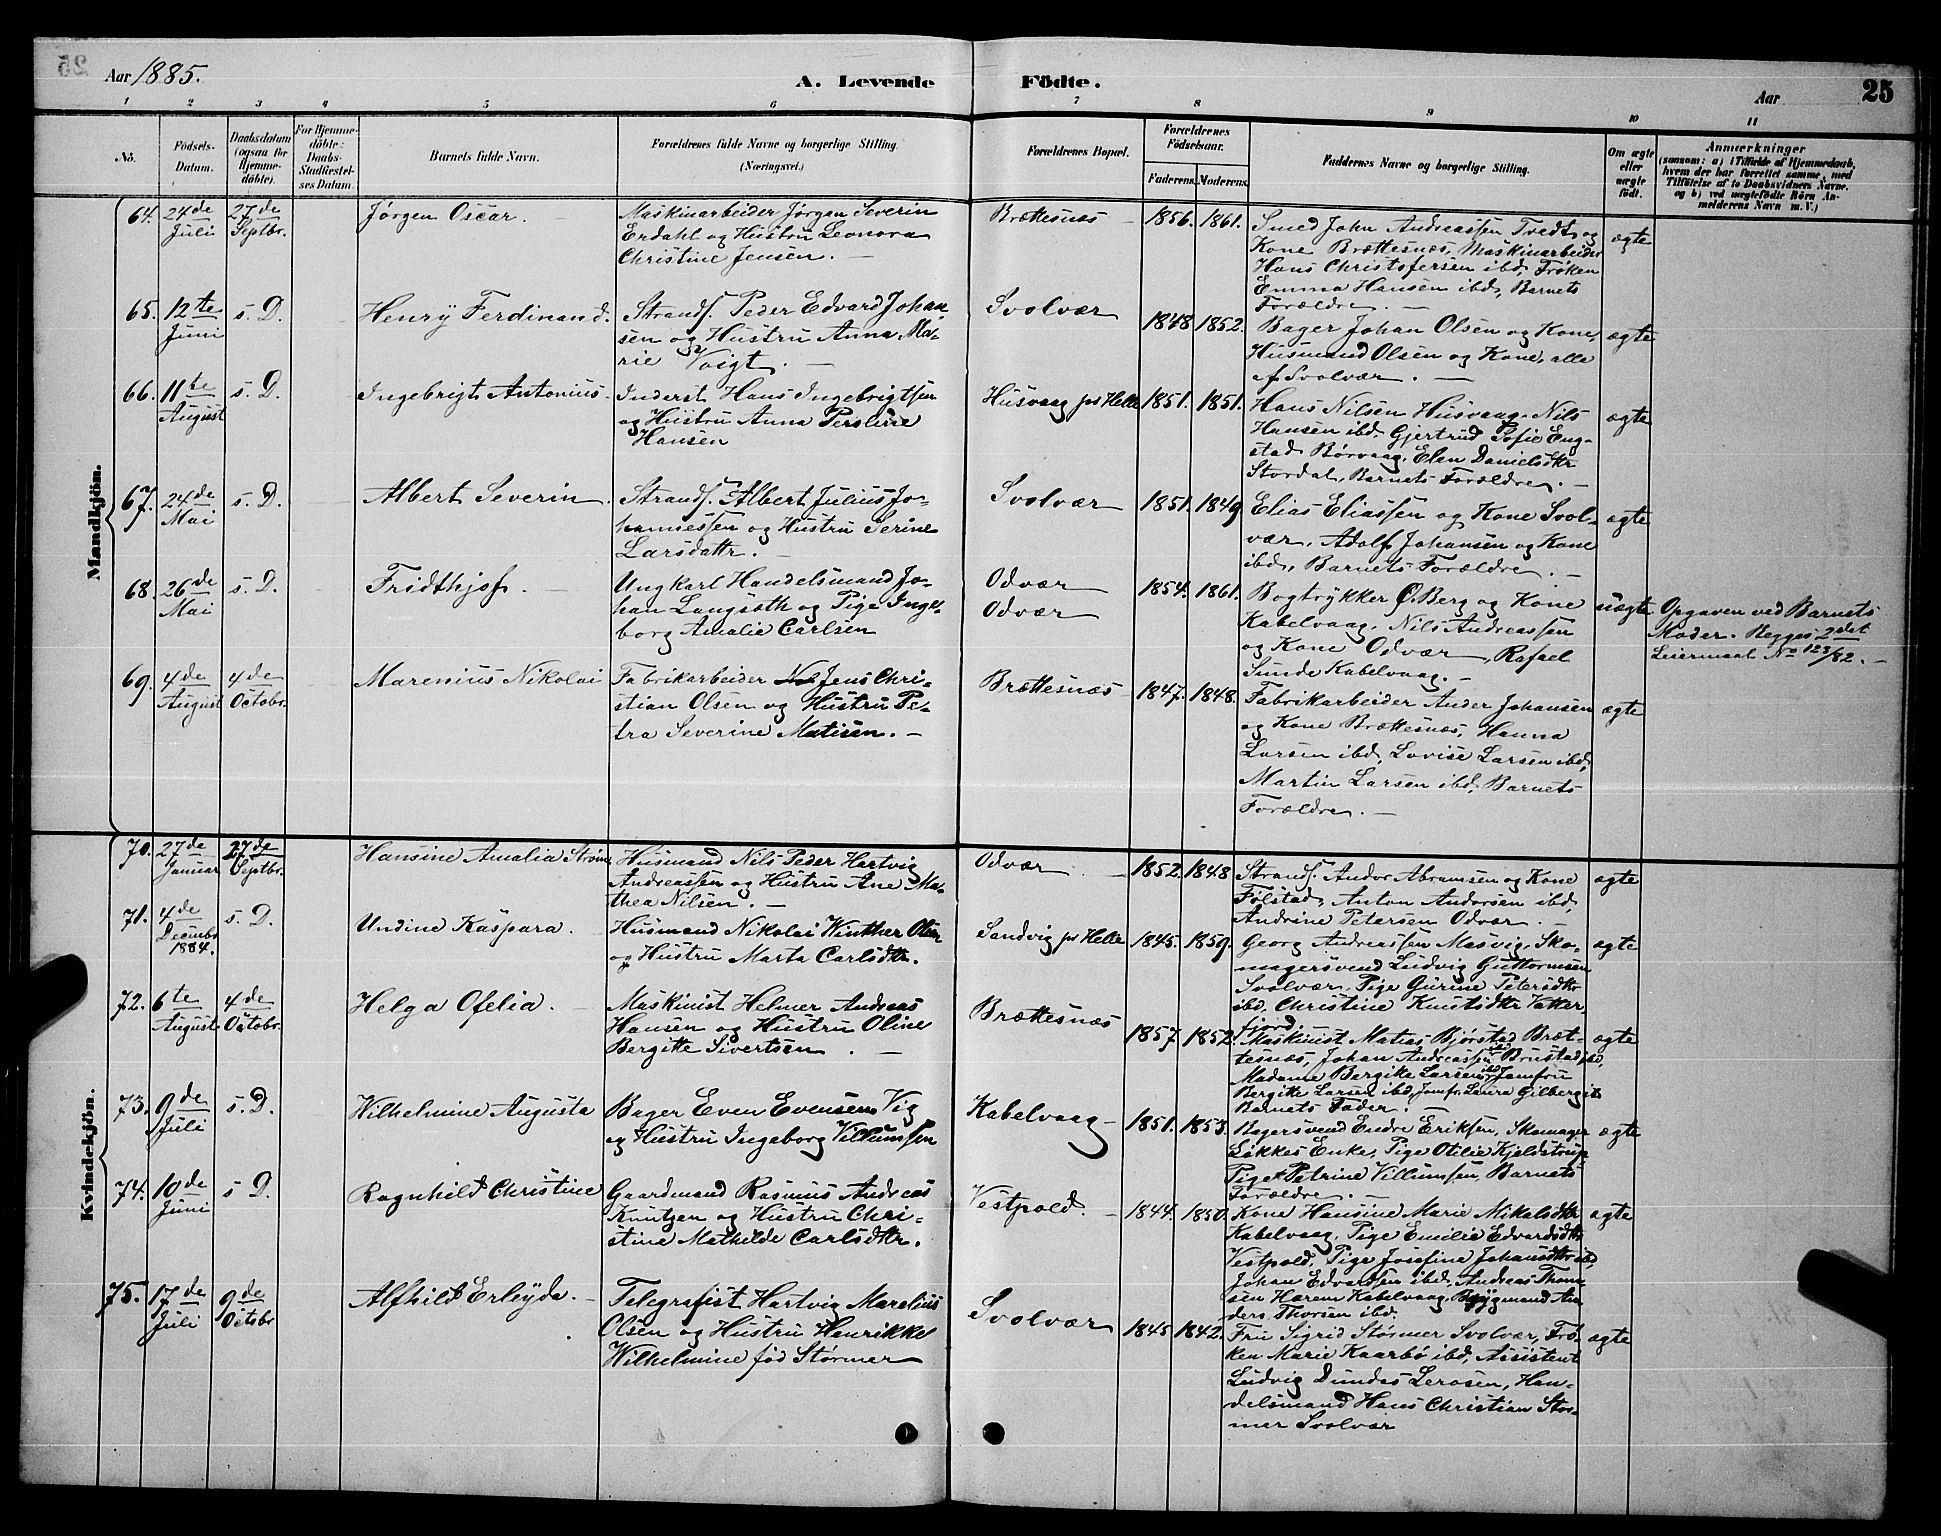 Aar 1885.
A. Levende Födte.
Aar
25
1 2 3 4 5 6 7 8 9 10 11
No.
Födsels-Datum.
Daabsdatum (ogsaa for Hjemme-döbte).
For Hjemme-döbte: Daabs-Stadfæstel-ses Datum.
Barnets fulde Navn.
Forældrenes fulde Navne og borgerlige Stilling. (Næringsvei.)
Forældrenes Bopæl.
Forældrenes Födselsaar.
Faderens. Moderens.
Faddernes Navne og borgerlige Stilling.
Om ægte eller uægte födt.
Anmærkninger
(saasom: a) i Tilfælde af Hjemmedaab, hvem der har forrettet samme, med Tilföielse af to Daabsvidners Navne, og b) ved uægtefödte Börn Anmelderens Navn m. V.)
Mandkjön.
64. 24de Juli 27de Septbr. Jørgen Oscar. –
Maskinarbeider Jørgen Severin
Erdahl og Hustru Leonora
Christine Jensen. –
Brættesnæs 1856. 1861.
Smed John Andreassen Tvedt og
Kone Brættesnæs, Maskinarbeider
Hans Christofersen ibd, Frøken
Emma Hansen ibd, Barnets
Forældre. –
ægte
65. 12te Juni s. D. Henry Ferdinand.
Strands. Peder Edvard Johan
sen og Hustru Anna Ma-
rie Voigt. –
Svolvær 1848 1852.
Bager Johan Olsen og Kone,
Husmand Olsen og Kone, alle
af Svolvær. –
ægte
66. 11te August s. D. Ingebrigt Antonius.
Inderst Hans Ingebrigtsen
og Hustru Anna
Hansen
Husvaag pr Helle 1851. 1851.
Hans Nilsen Husvaag. Nils
Hansen ibd. Gjertrud Sofie Eng-
stad Børvaag, Elen Danielsdtr
Stordal, Barnets Forældre. –
ægte
67. 24de Mai s. D. Albert Severin.
Strands. Albert Julius Jo-
hannessen og Hustru Serine
Larsdattr. –
Svolvær 1851. 1849
Elias Eliassen og Kone Svol-
vær, Adolf Johansen og Kone
ibd, Barnets Forældre. –
ægte
68. 26de Mai s. D. Fridthjof. –
Ungkarl Handelsmand Jo-
han Langseth og Pige Inge-
borg Amalie Carlsen
Odvær
Odvær
1854. 1861.
Bogtrykker O. Berg og Kone
Kabelvaag, Nils Andreassen
og Kone Odvær, Rafael
Sunde Kabelvaag. –
uægte
Opgaven ved Barnets
Moder. Begges 2det
Leiermaal No 123/82. –
69. 4de August 4de Octobr. Marenius Nikolai
Fabrikarbeider Jens Chri-
stian Olsen og Hustru Pe-
tra Severine Matisen. –
Brættesnæs 1847. 1848.
Fabrikarbeider Ander Johansen
og Kone Brættesnæs, Hanna
Larsen ibd, Lovise Larsen ibd,
Martin Larsen ibd, Barnets
Forældre. –
ægte
Kvindekjön.
70. 27de Januar 27de Septbr. Hansine Amalia Strøm
Husmand Nils Peder Hartvig
Andreassen og Hustru Ane Ma-
thea Nilsen. –
Odvær 1852. 1848
Strands. Andor Abramsen og Kone
Følstad, Anton Andorsen ibd,
Andrine Petersen Odvær. –
ægte
71. 4de Decembr 1884. s. D. Undine Kaspara.
Husmand Nikolai Winther Olsen
og Hustru Marta Carlsdtr.
Sandvig pr Helle 1845. 1859.
Georg Andreassen Masvig, Sko-
magersvend Ludvig Guttormsen
Svolvær, Pige Gurine Petersdtr
ibd, Christine Knutsdtr Vatter-
fjord.
ægte
72. 6te August 4de Octobr. Helga Ofelia. –
Maskinist Helmer Andreas
Hansen og Hustru Oline
Bergitte Sivertsen. –
Brættesnæs 1857 1852.
Maskinist Matias Bjørstad Bræt-
tesnæs, Johan Andreassen Brustad ibd,
Madame Bergitte Larsen ibd Jomfru
Bergitte Larsen ibd, Jomfr. Laura Gilberg ib
Barnets Fader. –
ægte
73. 9de Juli s. D. Wilhelmine Augusta
Bager Even Evensen Vig
og Hustru Ingeborg Villumsen
Kabelvaag – 1851. 1853.
Bagersvend Endre Eriksen, Skomager
Løkkes Enke, Pige Otilie Kjeldstrup
Pige Petrine Villumsen, Barnets
Forældre. –
ægte
74. 10de Juni s D. Ragnhild Christine
Gaardmand Rasmus Andreas
Knutzen og Hustru Chri-
stine Mathilde Carlsdtr.
Vestpold. – 1844. 1850.
Kone Hansine Marie Nikolsdtr
Kabelvaag, Pige Emilie Edvardsdtr
Vestpold, Pige Josefine Johansdtr ibd,
Johan Edvardsen ibd, Andreas Thom-
sen Harem Kabelvaag, Bygmand An
ders Thorsen ibd.
ægte
75. 17de Juli 9de Octobr Alfhild Erleyda. –
Telegrafist Hartvig Marelius
Olsen og Hustru Henrikke
Wilhelmine fød Størmer
Svolvær 1845 1842.
Fru Sigrid Størmer Svolvær, Frø-
ken Marie Kaarbø ibd, Assistent
Ludvig Dundas Lerosen, Han-
delsmand Hans Christian Stør-
mer Svolvær
ægte